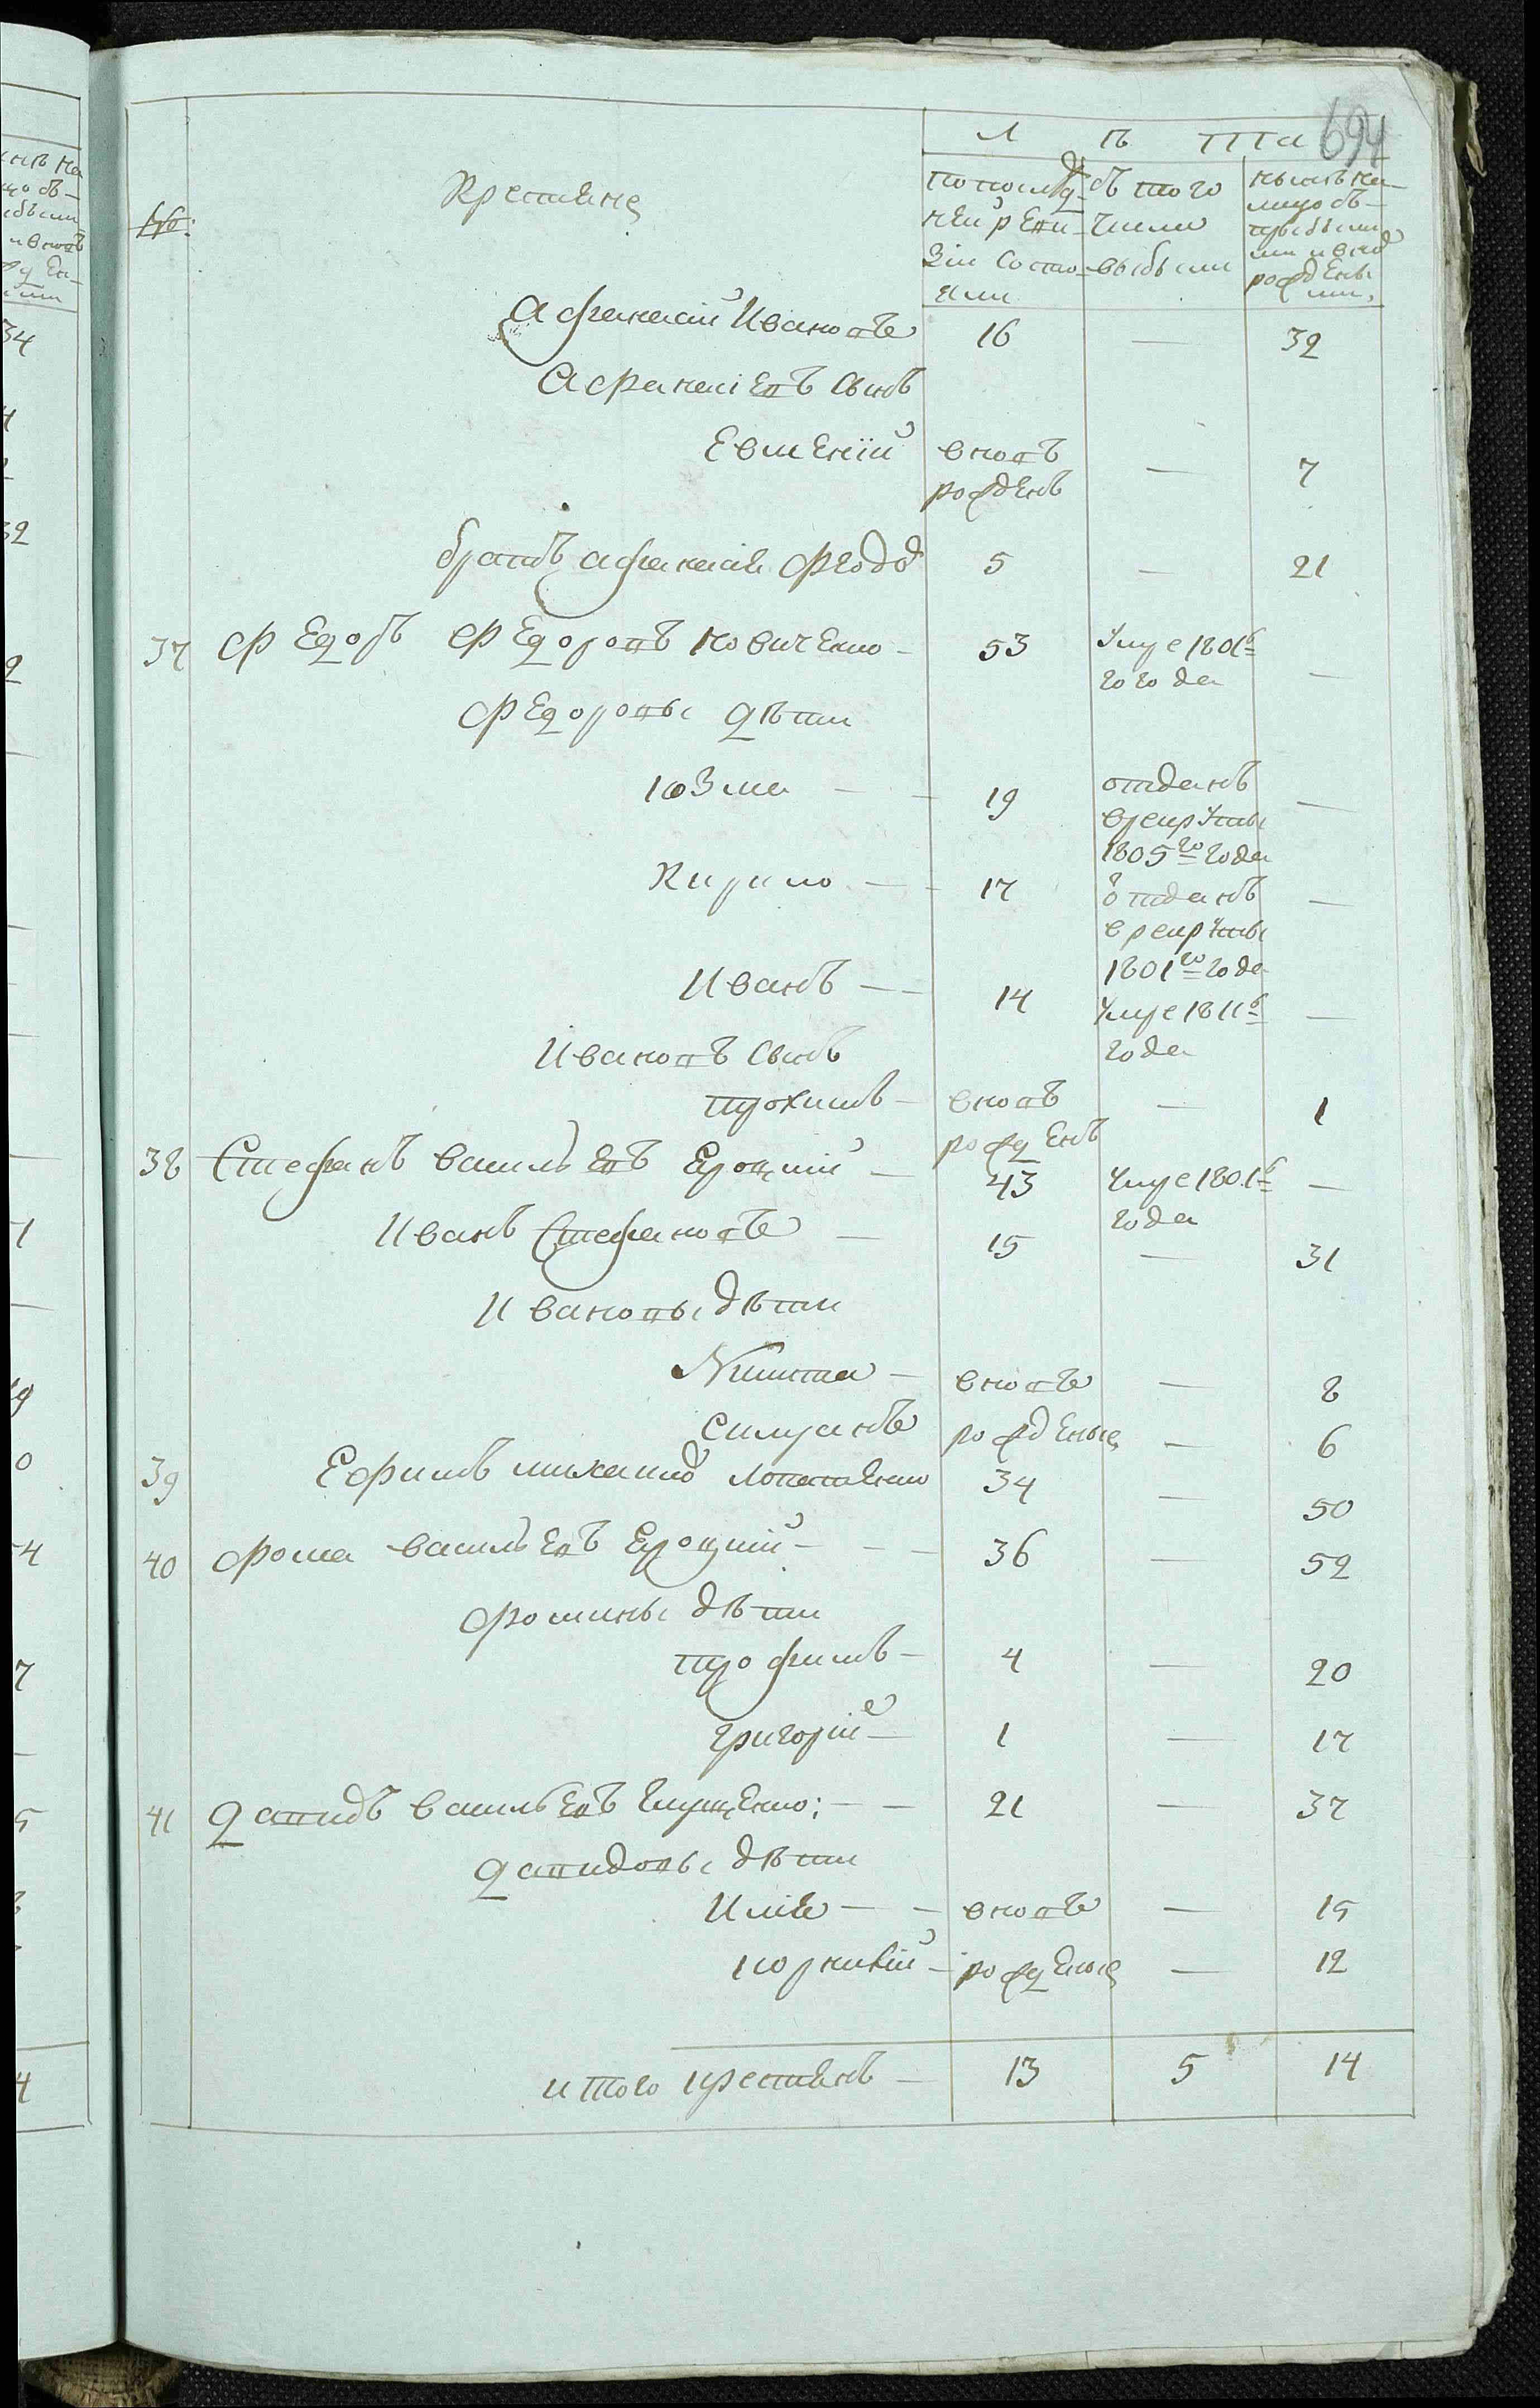 694
Лѣта
№:
Крестьяне
попослѣд- съ того нынѣ на-
ней реви- числа лицо съ-
зіи состо- выбыли прибылы-
яли ми и внов
рожденны-
ми.
Афанасій Ивановъ 16 — 32
Афанасіевъ сынъ
Евменій вновь рожденъ — 7
братъ Афанасія Фіодод 5 — 21
37 Федоръ Федоровъ Ковиченко — 53 умре 1801г года —
Федоровы дѣти
Козма — 19 отданъ врекруты 1805го года —
Кирило — 17 отданъ врекруты 1801го года —
Иванъ — 14 умре 1811г года —
Ивановъ сынъ
Прохимъ — вновь рожденъ — 1
38 Стефанъ Васильевъ Ероцкій — 43 умре 1801г года —
Иванъ Стефановъ — 15 — 31
Ивановы дѣти
Никита — вновь — 8
Силуанъ рожденые — 6
39 Ефимъ Михайлов Лопатенко 34 — 50
40 Фома Васильевъ Ероцкій — 36 — 52
Фомины дѣти
Профимъ — 4 — 20
Григорій — 1 — 17
41 Давидъ Васильевъ Глущенко; — 21 — 37
Давидовы дѣти
Илія — вновь — 15
Корнилій — рожденые — 12
итого крестьянъ — 13 5 14